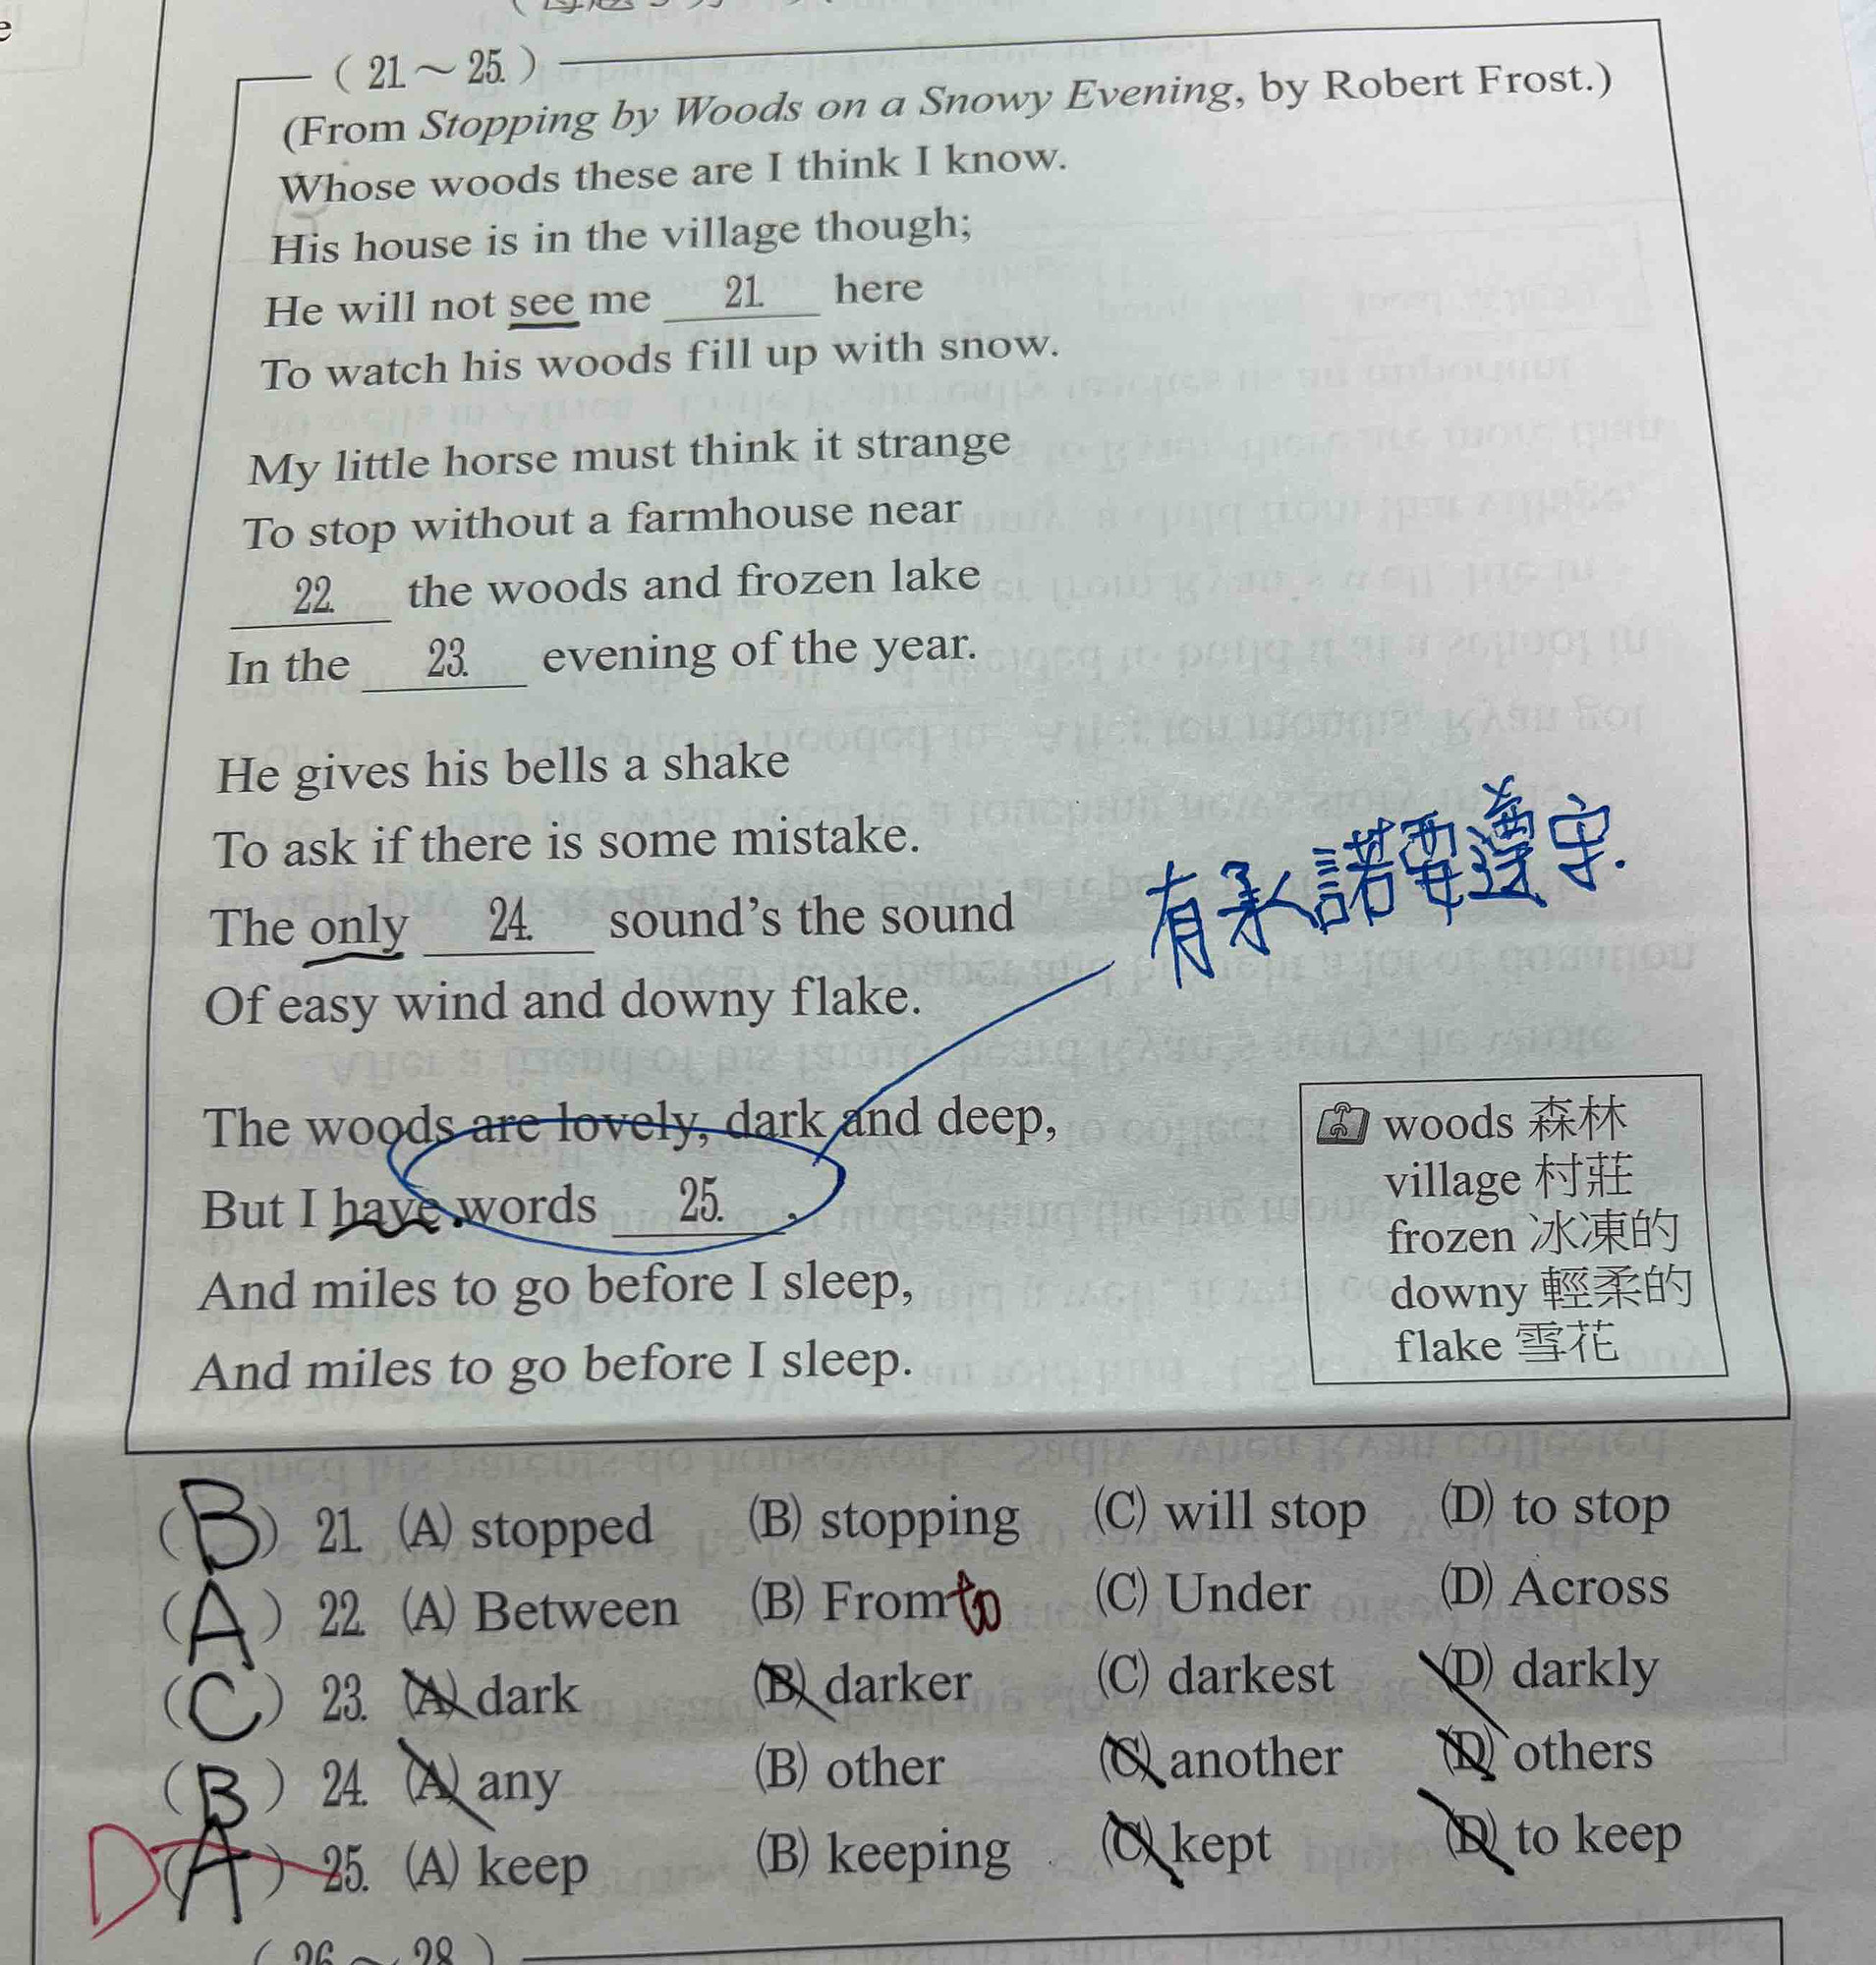 ( 21 ~ 25. )
(From Stopping by Woods on a Snowy Evening, by Robert Frost.)
Whose woods these are I think I know.
His house is in the village though;
He will not see me 21. here
To watch his woods fill up with snow.
My little horse must think it strange
To stop without a farmhouse near
22. the woods and frozen lake
In the 23. evening of the year.
He gives his bells a shake
To ask if there is some mistake.
The only 24. sound's the sound
Of easy wind and downy flake.
有承諾要遵守.
The woods are lovely, dark and deep,
But I have words 25. ,
And miles to go before I sleep,
And miles to go before I sleep.
woods 森林
village 村莊
frozen 冰凍的
downy 輕柔的
flake 雪花
( B ) 21. (A) stopped (B) stopping (C) will stop (D) to stop
( A ) 22. (A) Between (B) From to (C) Under (D) Across
( C ) 23. (A) dark (B) darker (C) darkest (D) darkly
( B ) 24. (A) any (B) other (C) another (D) others
D ( A ) 25. (A) keep (B) keeping (C) kept (D) to keep
( 26 ~ 28 )